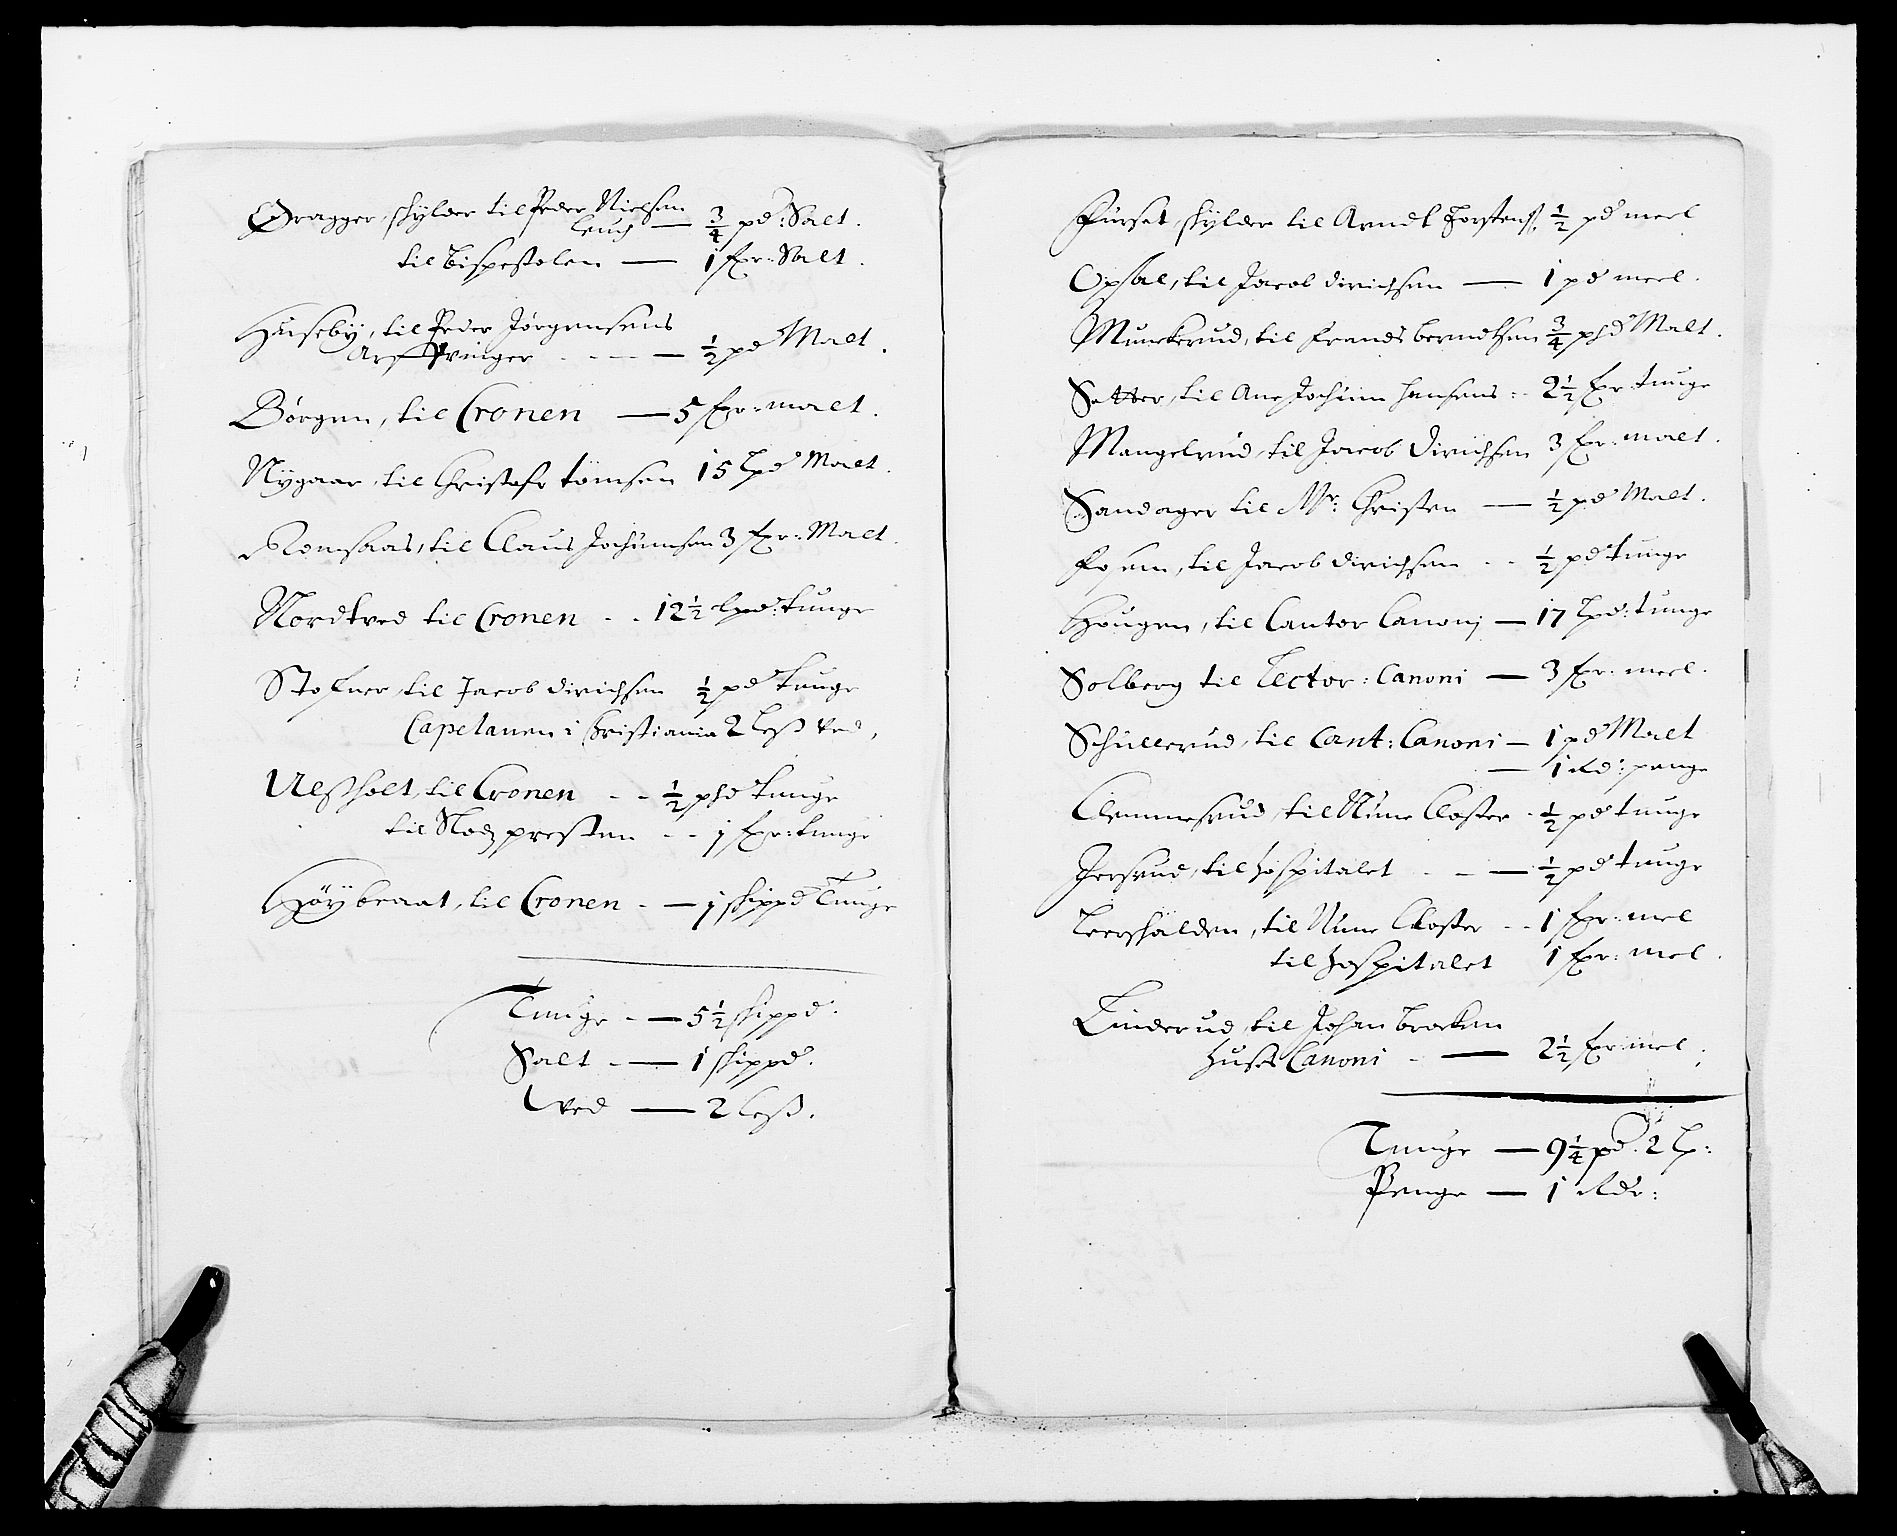 Gragger, skylder til Peder Nielsen
Leuch — 3/4 pd: Salt.
til bispestolen — 1 fr: Salt.
Huseby, til Peder Jørgensens
Arffvinger - - - — 1/2 pd Malt.
Børgen, til Cronen — 5 fr: malt.
Nygaar, til Christofr tomsen 15 lpd Malt.
Romsaas, til Claus Jochumsen 3 fr: Malt.
Nordtved til Cronen - - 12 1/2 lpd: tunge
Stofner, til Jacob dirichsen 1/2 pd tunge
Capelanen i Christiania 2 leß Ved,
Ulsholt, til Cronen - - 1/2 phd tunge
til presten - - 1 fr: tunge
Høybraat, til Cronen - — 1 skippd Tunge
Tunge - — 5 1/2 skippd:
Salt - — 1 skippd:
Ved — 2 leß.
Furset, skylder til Arndt Torstens: 1/2 pd meel
Opsal, til Jacob dirichsen — 1 pd meel.
Munkerud, til Frands berndtsen 3/4 phd Malt.
Setter, til Ane Jochum hansens - 2 1/2 fr tunge
Mangelrud, til Jacob Dirichsen 3 fr: malt.
Sandager til Mr: Christen — 1/2 pd Malt.
til Jacob dirichsen - - 1/2 pd tunge
Hougen, til Cantor Canonj — 17 lpd: tunge
Solberg til Lector: Canoni — 3 fr: meel.
Schullerud, til Cant: Canoni — 1 pd Malt
— 1 Rd: penge
Clemmesrud, til Nune Closter - 1/2 pd tunge
Jersrud, til hospitalet - - — 1/2 pd tunge
Leerskalden, til Nune Closter - - 1 fr: mel
til hospitalet 1 fr: mel.
Linderud, til Johan brocken
huses Canoni - — 2 1/2 fr: mel.
Tunge — 9 1/4 pd. 2 lp:
Penge — 1 Rdr: